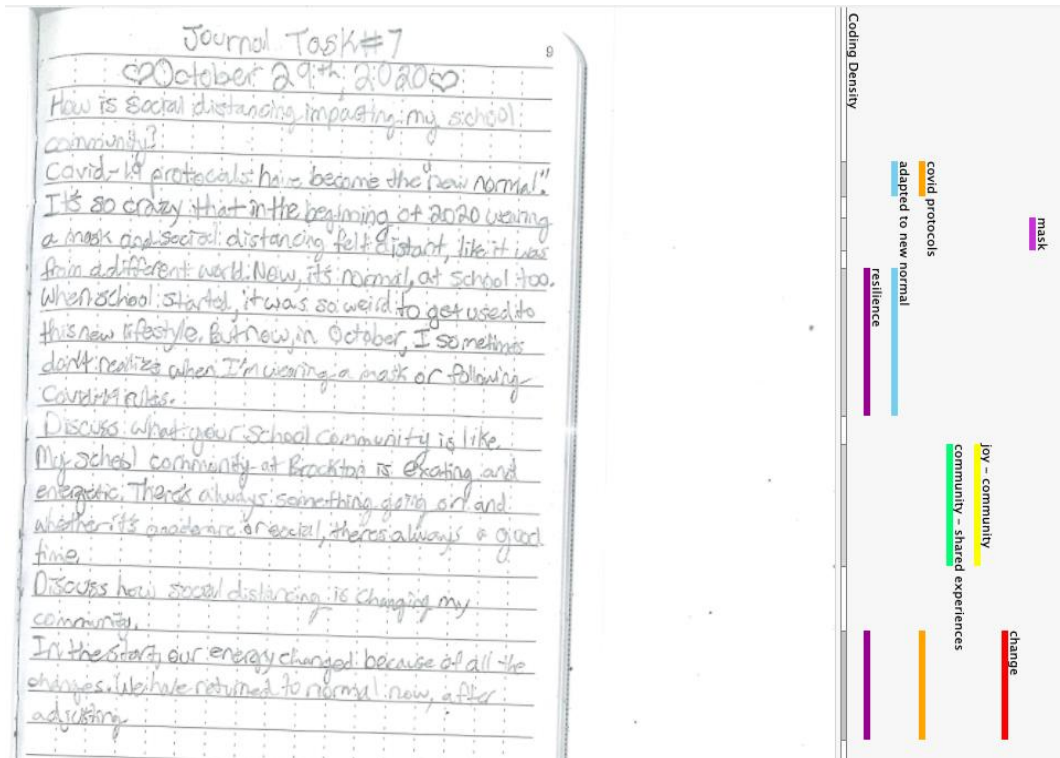 Journal Task#7
9
♡October 29th, 2020♡
How is social distancing impacting my school
community?
Covid-19 protocals have become the "new normal".
It's so crazy that in the beginning of 2020 wearing
a mask and social distancing felt distant, like it was
from a different world. Now, it's normal, at school too.
When school started, it was so weird to get used to
this new lifestyle. But now, in October, I sometimes
don't realize when I'm wearing a mask or following
Covid-19 rules.
Discuss what your school community is like.
My school community at Brockton is exating and
energetic. There's always something going on and
whether it's academic or social, there's always a good
time.
Discuss how social distancing is changing my
community.
In the start, our energy changed because of all the
changes. We have returned to normal now, after
adjusting
Coding Density
resilience
adapted to new normal
covid protocols
community - shared experiences
joy - community
change
mask